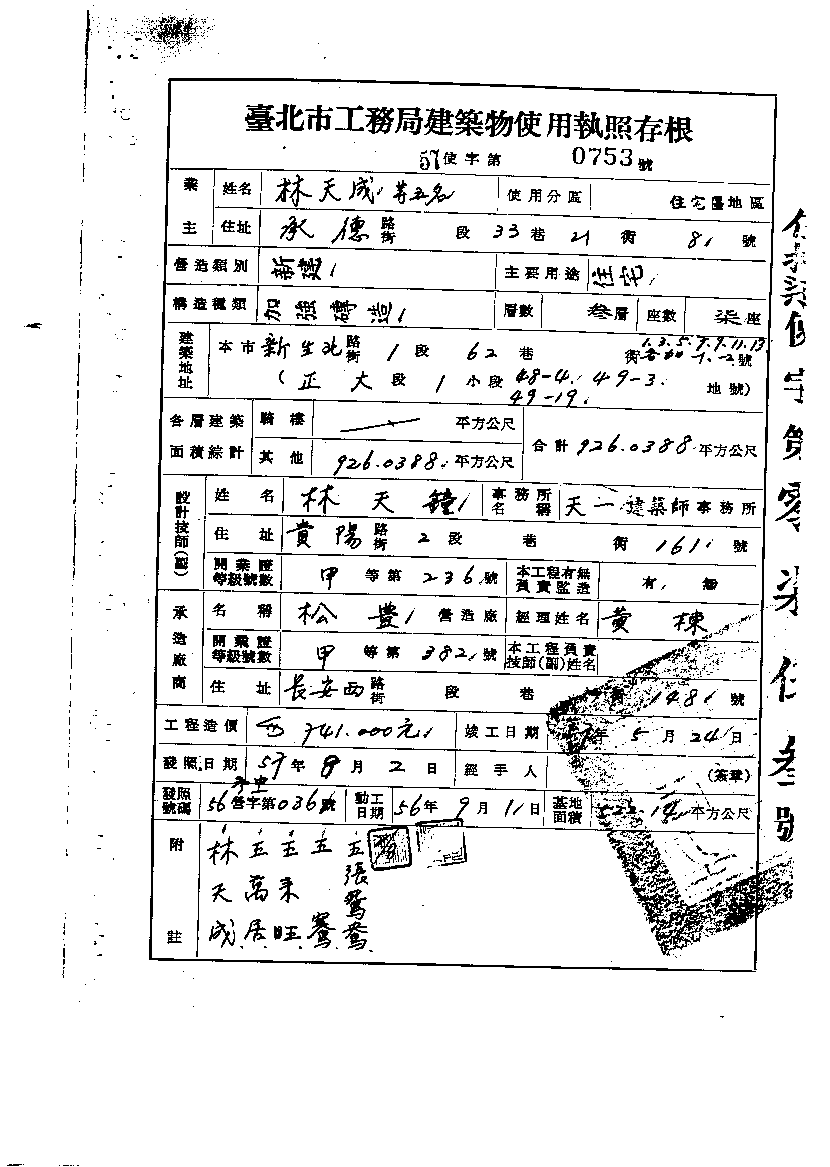 臺北市工務局建築物使用執照存根
57使字第 0753 號
業主 姓名 林天成等五名 使用分區 住宅區地區
住址 承德路街 段 33 巷 21 街 81 號
營造類別 新建 主要用途 住宅
構造種類 加強磚造 層數 叁層 座數 柒座
建築地址 本市 新生北路街 1 段 62 巷 街 1.3.5.7.9.11.13 號
(正大段 1 小段 48-4. 49-3. 49-19. 地號)
各層建築面積綜計 騎樓 平方公尺 合計 926.0388 平方公尺
其他 926.0388 平方公尺
設計技師(副) 姓名 林天鐘 事務所名稱 天一建築師事務所
住址 貴陽路街 2 段 巷 街 161 號
開業證等級號數 甲等第 236 號 本工程有無負責監造 有. 無
承造廠商 名稱 松豊 營造廠 經理姓名 黃棟
開業證等級號數 甲等第 382 號 本工程負責技師(副)姓名
住址 長安西路街 段 巷 街 148 號
工程造價 741.000元 竣工日期 57年 5 月 24 日
發照日期 57年 8 月 2 日 經手人 (簽章)
發照號碼 56營字第036號 動工日期 56年 9 月 11 日 基地面積 平方公尺
附註 林天成